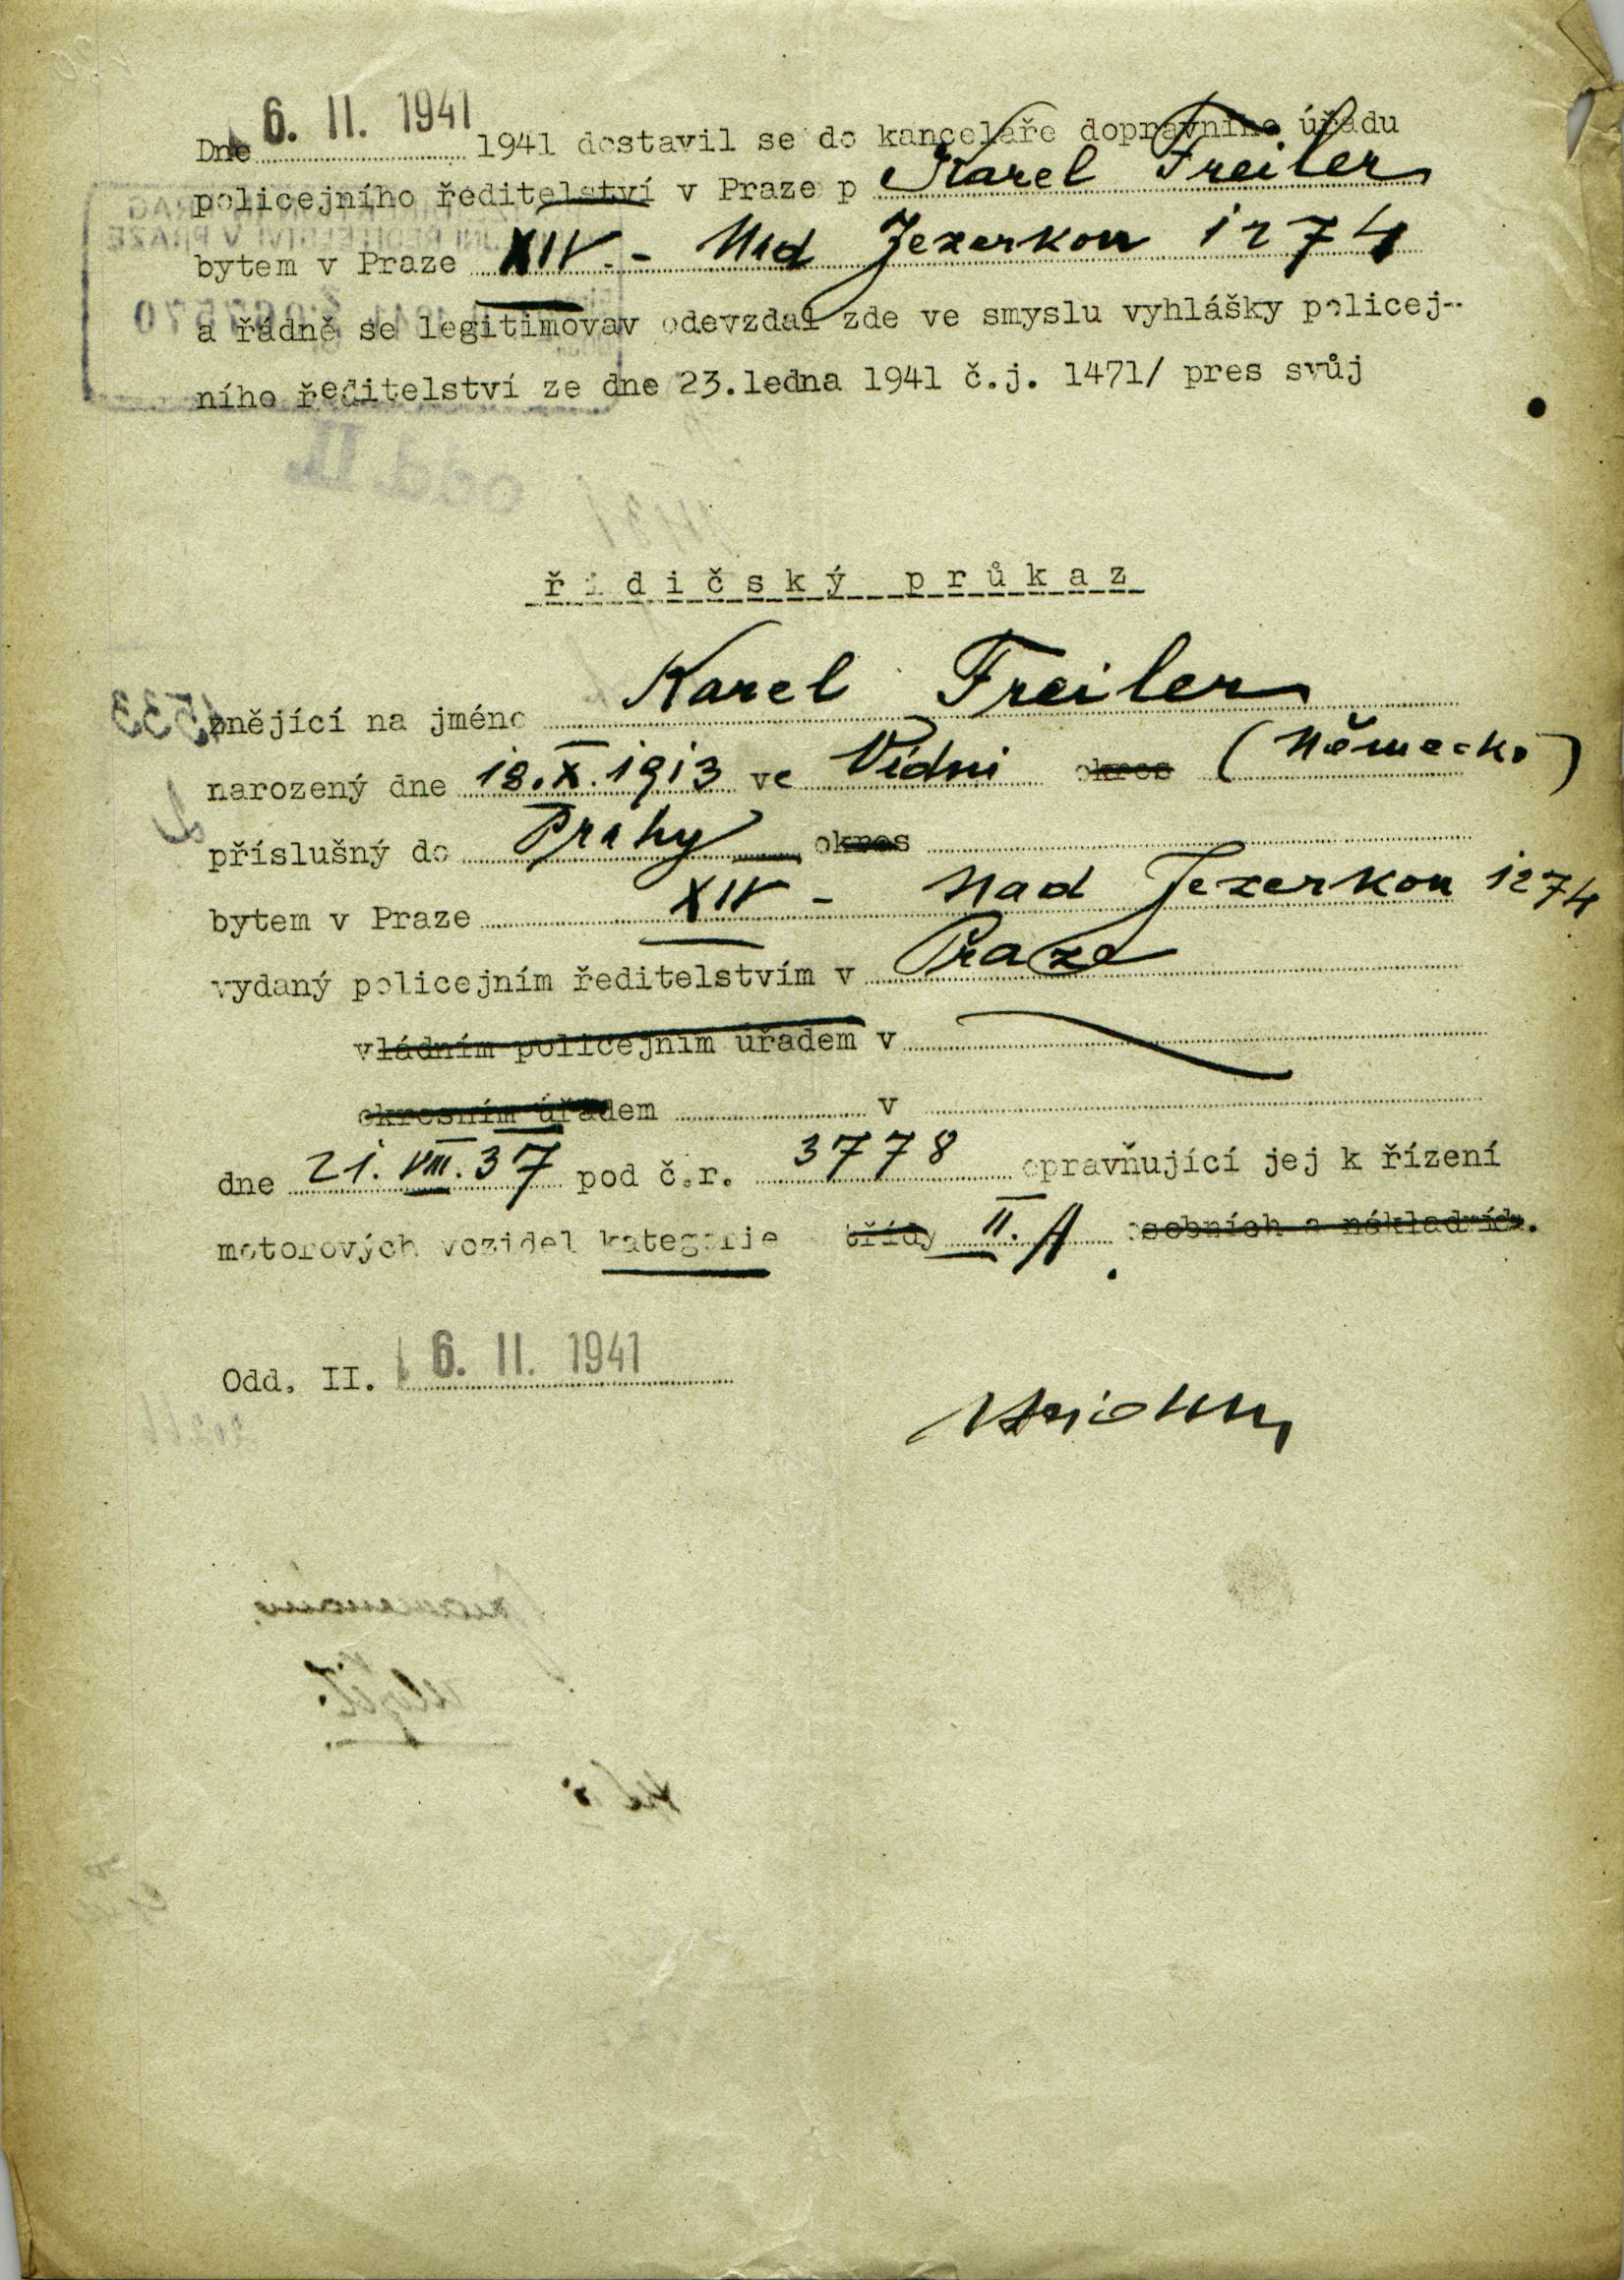 Dne 6. II. 1941 1941 dostavil se do kanceláře dopravního úřadu
policejního ředitelství v Praze p Karel Freiler
bytem v Praze XIV - Nad Jezerkou 1274
a řádně se legitimovav odevzdal zde ve smyslu vyhlášky policej-
ního ředitelství ze dne 23.ledna 1941 č.j. 1471/ pres svůj
odd. II.
řidičský průkaz
znějící na jméno Karel Freiler
narozený dne 18.X.1913 ve Vídni okres (Německo)
příslušný do Prahy okres
bytem v Praze XIV - Nad Jezerkou 1274
vydaný policejním ředitelstvím v Praze
vládním policejním úřadem v
okresním úřadem v
dne 21.VIII.37 pod č.r. 3778 opravňující jej k řízení
motorových vozidel kategorie třídy II.A osobních a nákladních.
Odd. II. 6. II. 1941